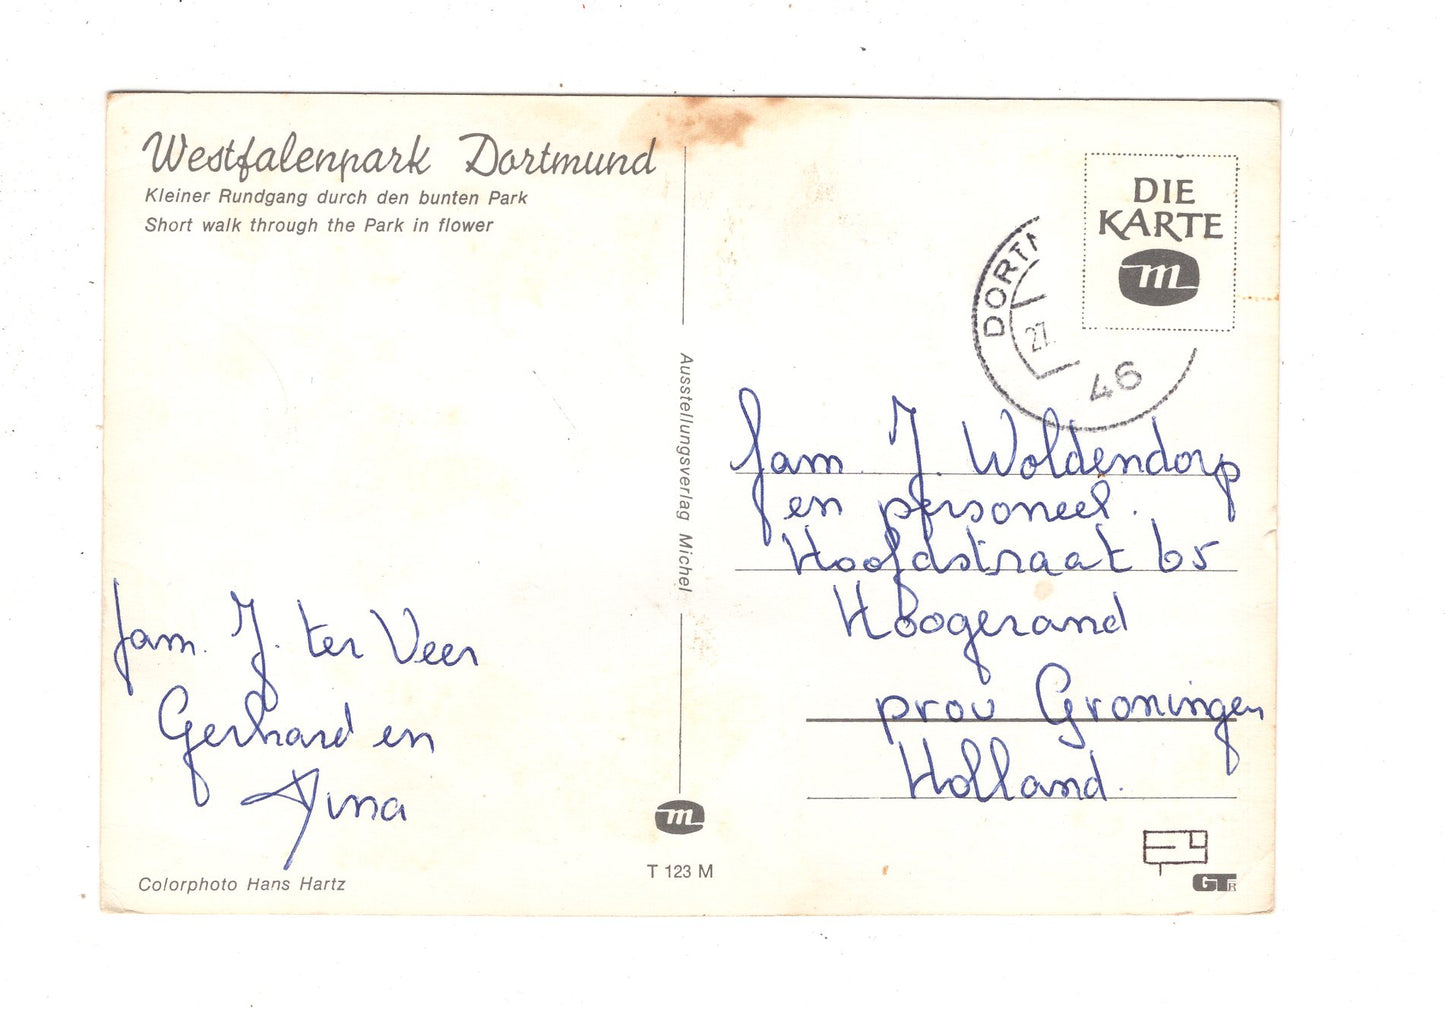 Westfalenpark Dortmund
Kleiner Rundgang durch den bunten Park
Short walk through the Park in flower
fam. J. ter Veer
Gerhard en
Dina
Colorphoto Hans Hartz
Ausstellungsverlag Michel
m
T 123 M
DIE
KARTE
m
DORTM
27.
46
fam. J. Woldendorp
en personeel.
Hoofdstraat 65
Hoogezand
prov Groningen
Holland.
GTR